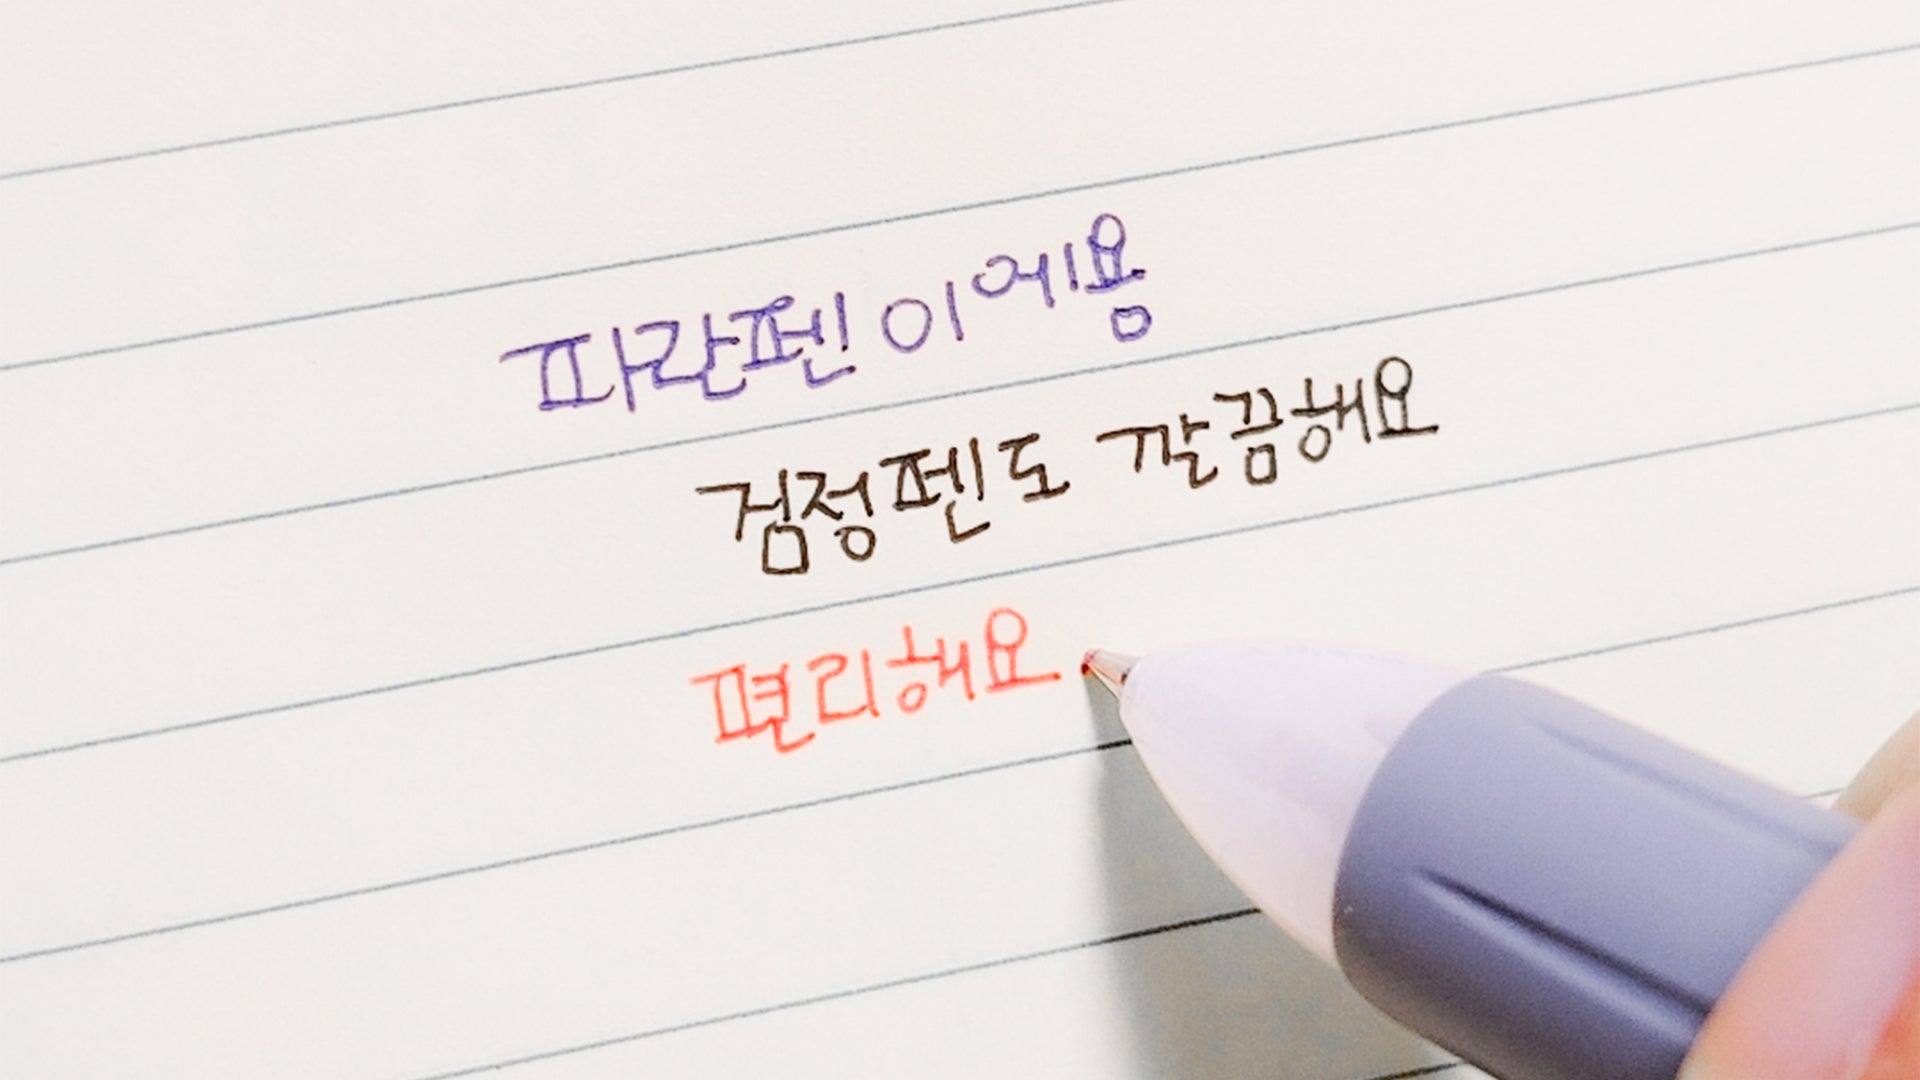 파란펜이에용
검정펜도 깔끔해요
편리해요.